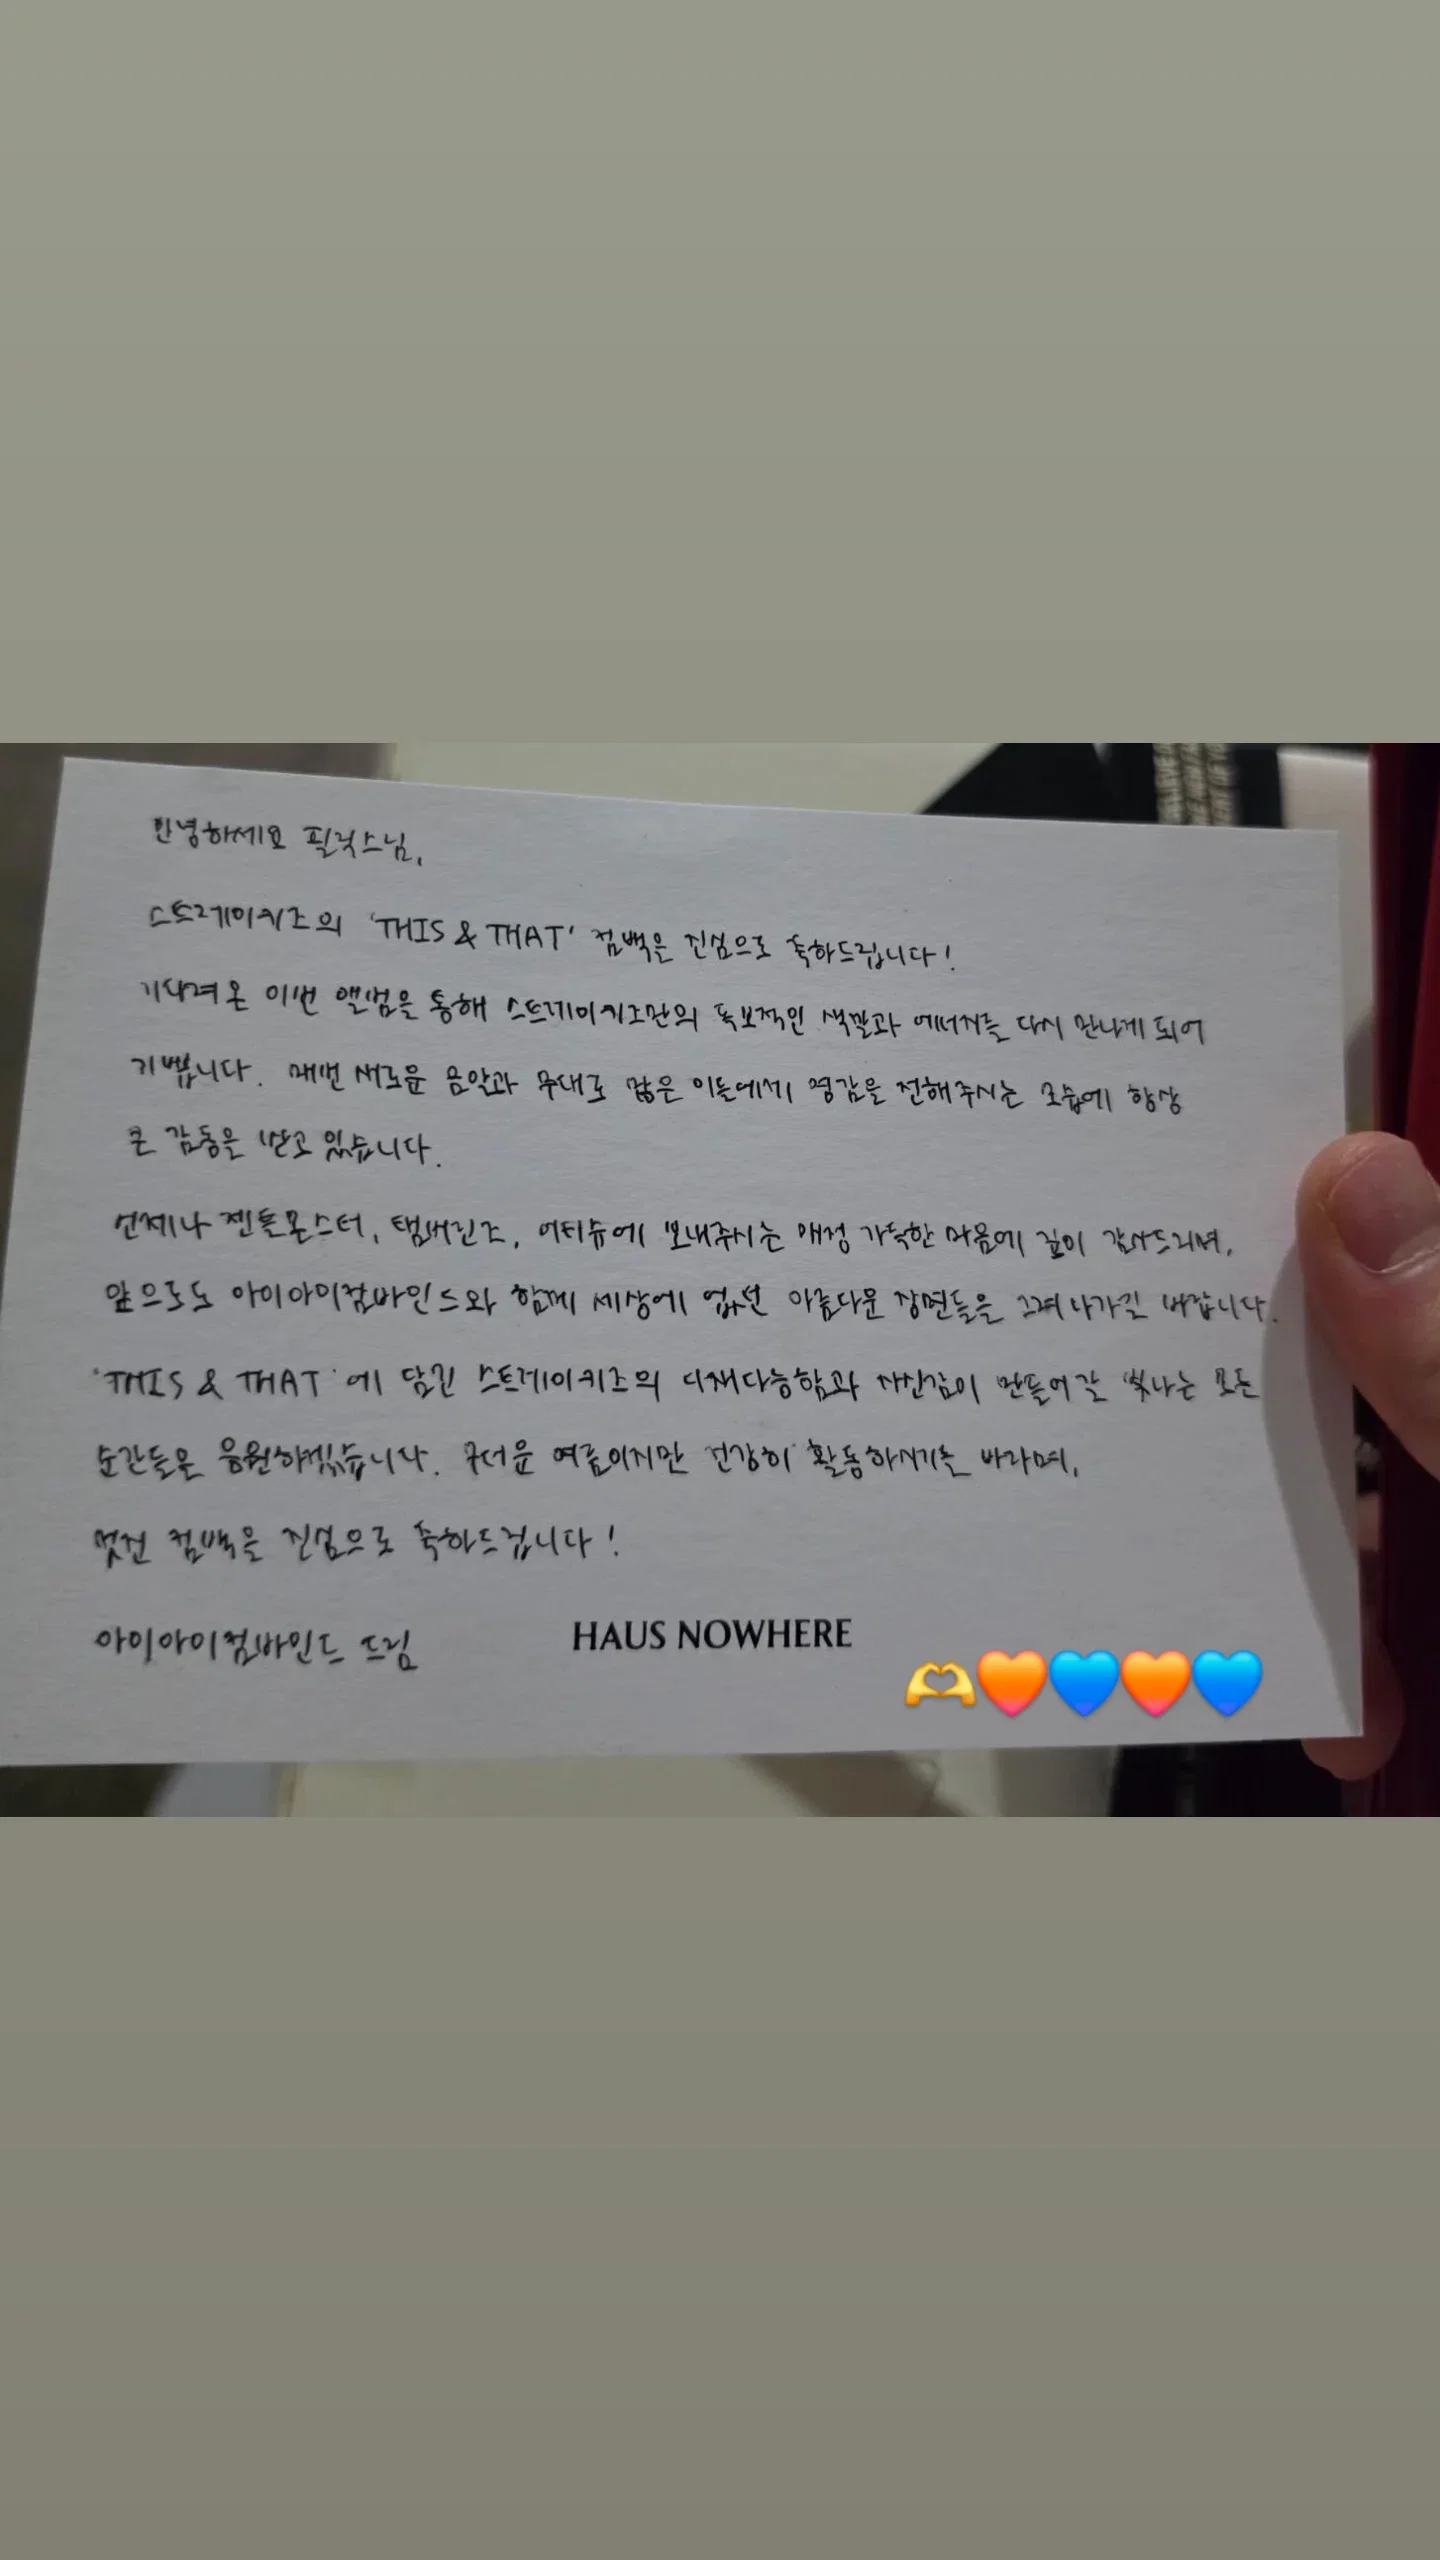 안녕하세요 필릭스님,
스트레이키즈의 'THIS & THAT' 컴백을 진심으로 축하드립니다!
기다려온 이번 앨범을 통해 스트레이키즈만의 독보적인 색깔과 에너지를 다시 만나게 되어
기쁩니다. 매번 새로운 음악과 무대로 많은 이들에게 영감을 전해주시는 모습에 항상
큰 감동을 받고 있습니다.
언제나 젠틀몬스터, 탬버린즈, 어티슈에 보내주시는 애정 가득한 마음에 깊이 감사드리며,
앞으로도 아이아이컴바인드와 함께 세상에 없던 아름다운 장면들을 그려나가길 바랍니다.
'THIS & THAT'에 담긴 스트레이키즈의 다재다능함과 자신감이 만들어갈 빛나는 모든
순간들을 응원하겠습니다. 무더운 여름이지만 건강히 활동하시기를 바라며,
멋진 컴백을 진심으로 축하드립니다!
아이아이컴바인드 드림
HAUS NOWHERE